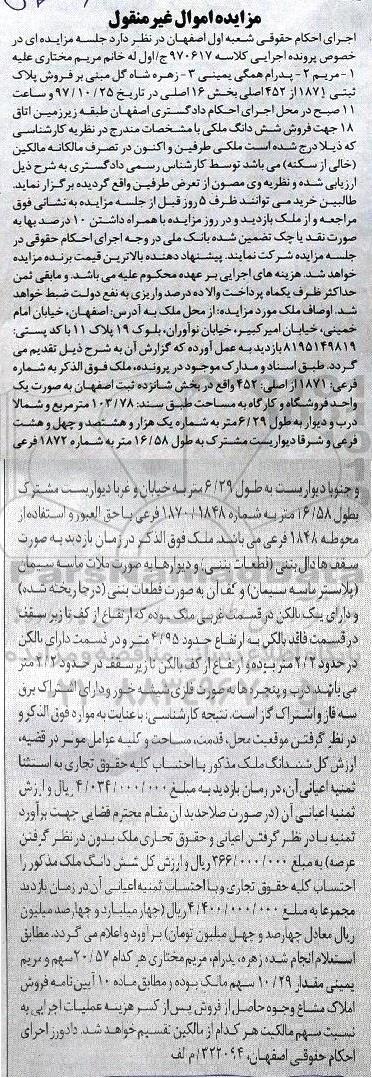 مزایده اموال غیر منقول
اجرای احکام حقوقی شعبه اول اصفهان در نظر دارد جلسه مزایده ای در
خصوص پرونده اجرایی کلاسه ۹۷۰۶۱۷ ج/اول له خانم مریم مختاری علیه
۱- مریم ۲- پدرام همگی یمینی ۳- زهره شاه گل مبنی بر فروش پلاک
ثبتی ۱۸۷۱ از ۴۵۲ اصلی بخش ۱۶ اصلی در تاریخ ۹۷/۱۰/۲۵ و ساعت
۱۱ صبح در محل اجرای احکام دادگستری اصفهان طبقه زیرزمین اتاق
۱۸ جهت فروش شش دانگ ملکی با مشخصات مندرج در نظریه کارشناسی
که ذیلا درج شده است ملکی طرفین و اکنون در تصرف مالکانه مالکین
(خالی از سکنه) می باشد توسط کارشناس رسمی دادگستری به شرح ذیل
ارزیابی شده و نظریه وی مصون از تعرض طرفین واقع گردیده برگزار نماید.
طالبین خرید می توانند ظرف ۵ روز قبل از جلسه مزایده به نشانی فوق
مراجعه و از ملک بازدید و در روز مزایده با همراه داشتن ۱۰ درصد بها به
صورت نقد یا چک تضمین شده بانک ملی در وجه اجرای احکام حقوقی در
جلسه مزایده شرکت نمایند. پیشنهاد دهنده بالاترین قیمت برنده مزایده
خواهد شد. هزینه های اجرایی بر عهده محکوم علیه می باشد. و مابقی ثمن
حداکثر ظرف یکماه پرداخت والا ده درصد واریزی به نفع دولت ضبط خواهد
شد. اوصاف ملک مورد مزایده: از محل ملک به آدرس: اصفهان، خیابان امام
خمینی، خیابان امیر کبیر، خیابان نوآوران، بلوک ۱۹ پلاک ۱۱ با کد پستی:
۸۱۹۵۱۴۹۸۱۹ بازدید به عمل آورده که گزارش آن به شرح ذیل تقدیم می
گردد. طبق اسناد و مدارک موجود در پرونده، ملک فوق الذکر به شماره
فرعی: ۱۸۷۱ از اصلی: ۴۵۲ واقع در بخش شانزده ثبت اصفهان به صورت یک
واحد فروشگاه و کارگاه به مساحت طبق سند: ۱۰۳/۷۸ مترمربع و شمالا
درب و دیوار به طول ۶/۲۹ متر به شماره یک هزار و هشتصد و چهل و هشت
فرعی و شرقا دیواریست مشترک به طول ۱۶/۵۸ متر به شماره ۱۸۷۲ فرعی
و جنوبا دیواریست به طول ۶/۲۹ متر به خیابان و غربا دیواریست مشترک
بطول ۱۶/۵۸ متر به شماره ۱۸۷۰/۱۸۴۸ فرعی با حق العبور و استفاده از
محوطه ۱۸۴۸ فرعی می باشد. ملک فوق الذکر در زمان بازدید به صورت
سقف ها دال بتنی (قطعات بتنی) و دیوارها به صورت ملات ماسه سیمان
(پلاستر ماسه سیمان) و کف آن به صورت قطعات بتنی (درجا ریخته شده)
و دارای یک بالکن در قسمت غربی ملک بوده که ارتفاع از کف تا زیر سقف
در قسمت فاقد بالکن به ارتفاع حدود ۴/۹۵ متر و در قسمت دارای بالکن
در حدود ۲/۲ متر بوده و ارتفاع از کف بالکن تا زیر سقف در حدود ۲/۲ متر
می باشد. درب و پنجره ها به صورت فلزی شیشه خور و دارای اشتراک برق
سه فاز و اشتراک گاز است. نتیجه کارشناسی: با عنایت به موارد فوق الذکر و
در نظر گرفتن موقعیت محل، قدمت، مساحت و کلیه عوامل موثر در قضیه،
ارزش کل ششدانگ ملک مذکور با احتساب کلیه حقوق تجاری به استثنا
ثمنیه اعیانی آن، در زمان بازدید به مبلغ ۴/۰۳۴/۰۰۰/۰۰۰ ریال و ارزش
ثمنیه اعیانی آن (در صورت صلاحدید آن مقام محترم قضایی جهت برآورد
ثمنیه با در نظر گرفتن اعیانی و حقوق تجاری ملک بدون در نظر گرفتن
عرصه) به مبلغ ۳۶۶/۰۰۰/۰۰۰ ریال و ارزش کل شش دانگ ملک مذکور را
احتساب کلیه حقوق تجاری و با احتساب ثمنیه اعیانی آن در زمان بازدید
مجموعا به مبلغ ۴/۴۰۰/۰۰۰/۰۰۰ ریال (چهار میلیارد و چهارصد میلیون
ریال معادل چهارصد و چهل میلیون تومان) برآورد و اعلام می گردد. مطابق
استعلام انجام شده زهره، پدرام، مریم مختاری هر کدام ۲۰/۵۷ سهم و مریم
یمینی مقدار ۱۰/۲۹ سهم مالک بوده و مطابق ماده ۱۰ آیین نامه فروش
املاک مشاع وجوه حاصل از فروش پس از کسر هزینه عملیات اجرایی به
نسبت سهم مالکیت هر کدام از مالکین تقسیم خواهد شد. دادورز اجرای
احکام حقوقی اصفهان، ۳۲۲۰۹۴/م الف